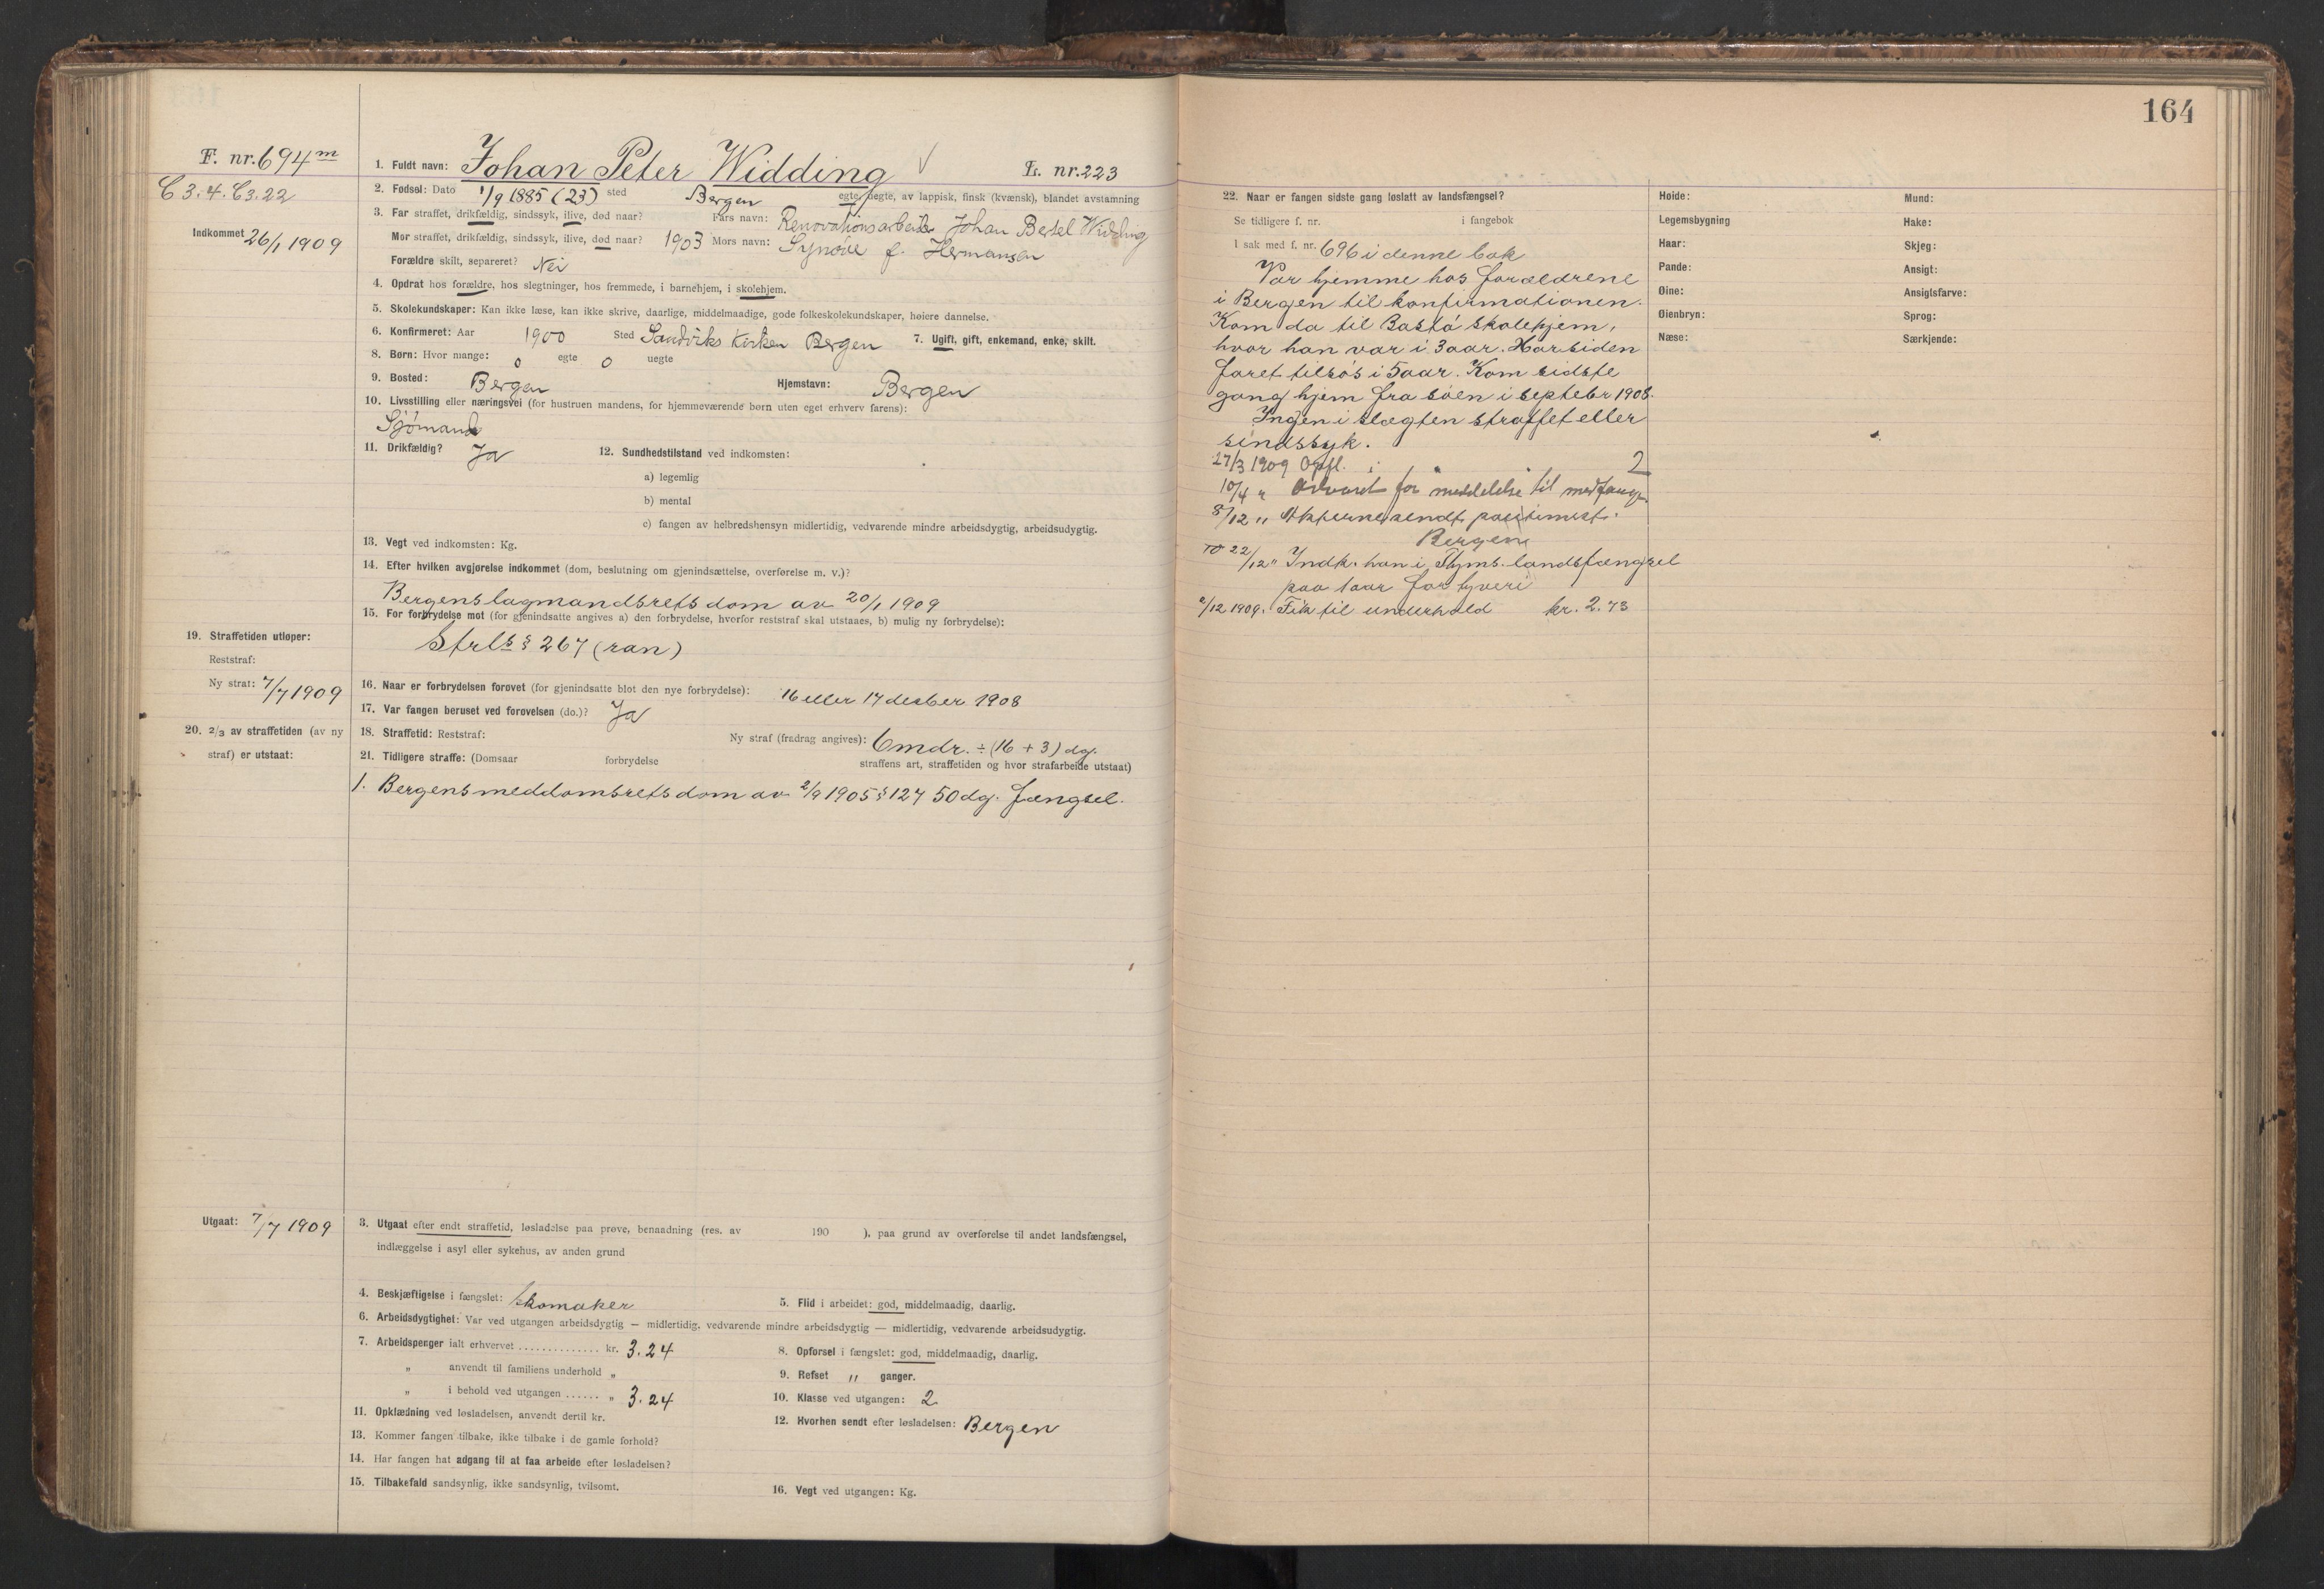 F. nr. 694 m
C3.4. C3.22
Indkommet 26/1 1909
1. Fuldt navn: Johan Peter Widding L. nr. 223
2. Fødsel: Dato 1/9 1885 (23) sted Bergen egte, uegte, av lappisk, finsk (kvænsk), blandet avstamning
3. Far straffet, drikfældig, sindssyk, ilive, død naar? Fars navn: Renovationsarbeider Johan Bertel Widding
Mor straffet, drikfældig, sindssyk, ilive, død naar? 1903 Mors navn: Synøve f. Hermansen
Forældre skilt, separeret? Nei
4. Opdrat hos forældre, hos slegtninger, hos fremmede, i barnehjem, i skolehjem.
5. Skolekundskaper: Kan ikke læse, kan ikke skrive, daarlige, middelmaadige, gode folkeskolekundskaper, høiere dannelse.
6. Konfirmeret: Aar 1900 Sted Sandviks Kirken Bergen 7. Ugift, gift, enkemand, enke, skilt.
8. Børn: Hvor mange: 0 egte 0 uegte
9. Bosted: Bergen Hjemstavn: Bergen
10. Livsstilling eller næringsvei (for hustruen mandens, for hjemmeværende børn uten eget erhverv farens):
Sjømand
11. Drikfældig? Ja 12. Sundhedstilstand ved indkomsten:
a) legemlig
b) mental
c) fangen av helbredshensyn midlertidig, vedvarende mindre arbeidsdygtig, arbeidsudygtig.
13. Vegt ved indkomsten: Kg.
14. Efter hvilken avgjørelse indkommet (dom, beslutning om gjenindsættelse, overførelse m. v.)?
Bergens lagmandsrets dom av 20/1 1909
15. For forbrydelse mot (for gjenindsatte angives a) den forbrydelse, hvorfor reststraf skal utstaaes, b) mulig ny forbrydelse):
Strls § 267 (ran)
19. Straffetiden utløper:
Reststraf:
Ny straf: 7/7 1909
16. Naar er forbrydelsen forøvet (for gjenindsatte blot den nye forbrydelse): 16 eller 17 desber 1908
17. Var fangen beruset ved forøvelsen (do.)? Ja
20. 2/3 av straffetiden (av ny
straf) er utstaat:
18. Straffetid: Reststraf: Ny straf (fradrag angives): 6 mdr. ÷ (16 + 3) dg.
21. Tidligere straffe: (Domsaar forbrydelse straffens art, straffetiden og hvor strafarbeide utstaat)
1. Bergens meddomsrets dom av 2/9 1905 § 127 50 dg. fængsel.
Utgaat: 7/7 1909
3. Utgaat efter endt straffetid, løsladelse paa prøve, benaadning (res. av 190 ), paa grund av overførelse til andet landsfængsel,
indlæggelse i asyl eller sykehus, av anden grund
4. Beskjæftigelse i fængslet: skomaker 5. Flid i arbeidet: god, middelmaadig, daarlig.
6. Arbeidsdygtighet: Var ved utgangen arbeidsdygtig — midlertidig, vedvarende mindre arbeidsdygtig — midlertidig, vedvarende arbeidsudygtig.
7. Arbeidspenger ialt erhvervet .............. kr. 3.24 8. Opførsel i fængslet: god, middelmaadig, daarlig.
" anvendt til familiens underhold " 9. Refset " ganger.
" i behold ved utgangen ...... " 3.24 10. Klasse ved utgangen: 2
11. Opklædning ved løsladelsen, anvendt dertil kr. 12. Hvorhen sendt efter løsladelsen: Bergen
13. Kommer fangen tilbake, ikke tilbake i de gamle forhold?
14. Har fangen hat adgang til at faa arbeide efter løsladelsen?
15. Tilbakefald sandsynlig, ikke sandsynlig, tvilsomt. 16. Vegt ved utgangen: Kg.
164
22. Naar er fangen sidste gang løslatt av landsfængsel?
Se tidligere f. nr. i fangebok
I sak med f. nr. 696 i denne bok
Var hjemme hos forældrene
i Bergen til konfirmationen.
Kom da til Bastø skolehjem,
hvor han var i 3 aar. Har siden
faret tilsøs i 5 aar. Kom sidste
gang hjem fra søen i septebr 1908.
Ingen i slægten straffet eller
sindssyk.
27/3 1909 Opfl. i " " 2
10/4 " Advaret for meddelelse til medfange
8/12 " Akterne sendt politimest.
Bergen
22/12 " Indk. han i landsfængsel
paa 1 aar for tyveri
2/12 1909. Fik til underhold kr. 2.73
Høide:
Legemsbygning
Haar:
Pande:
Øine:
Øienbryn:
Næse:
Mund:
Hake:
Skjeg:
Ansigt:
Ansigtsfarve:
Sprog:
Særkjende: